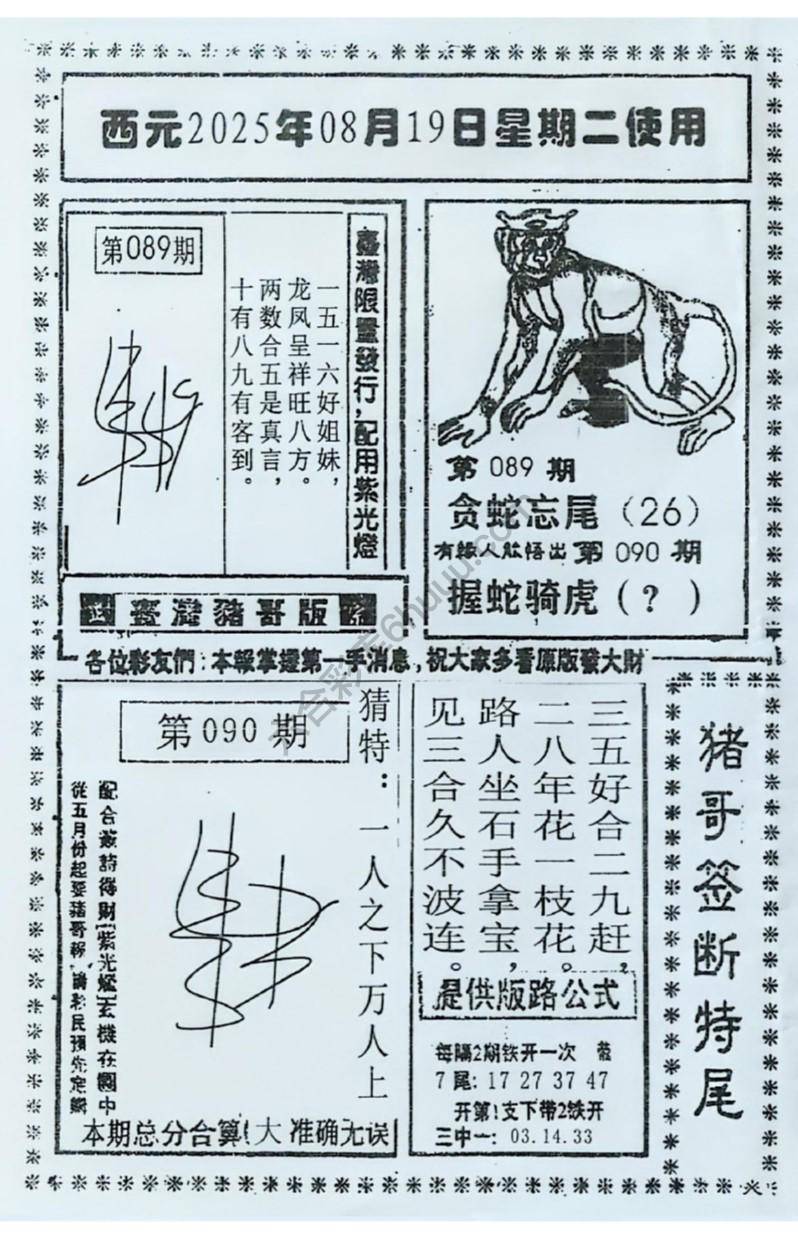 西元2025年08月19日星期二使用
第089期
一五一六好姐妹,
龙凤呈祥旺八方。
两数合五是真言,
十有八九有客到。
臺灣限量發行,配用紫光燈
臺灣豬哥版
第089期
贪蛇忘尾(26)
有緣人能悟出第090期
握蛇骑虎(?)
各位彩友們:本報掌握第一手消息,祝大家多看原版發大財
第090期
猜特:一人之下万人上
配合签詩得財[紫光燈]玄機在圖中
從五月份起要豬哥報 請彩民預先定購
本期总分合算(大 准确无误
三五好合二九赶,
二八年花一枝花。
路人坐石手拿宝,
见三合久不波连。
提供版路公式
每隔2期铁开一次
7尾:17 27 37 47
开第1支下带2铁开
三中一:03.14.33
猪哥签断特尾
六合彩库6huuu.com